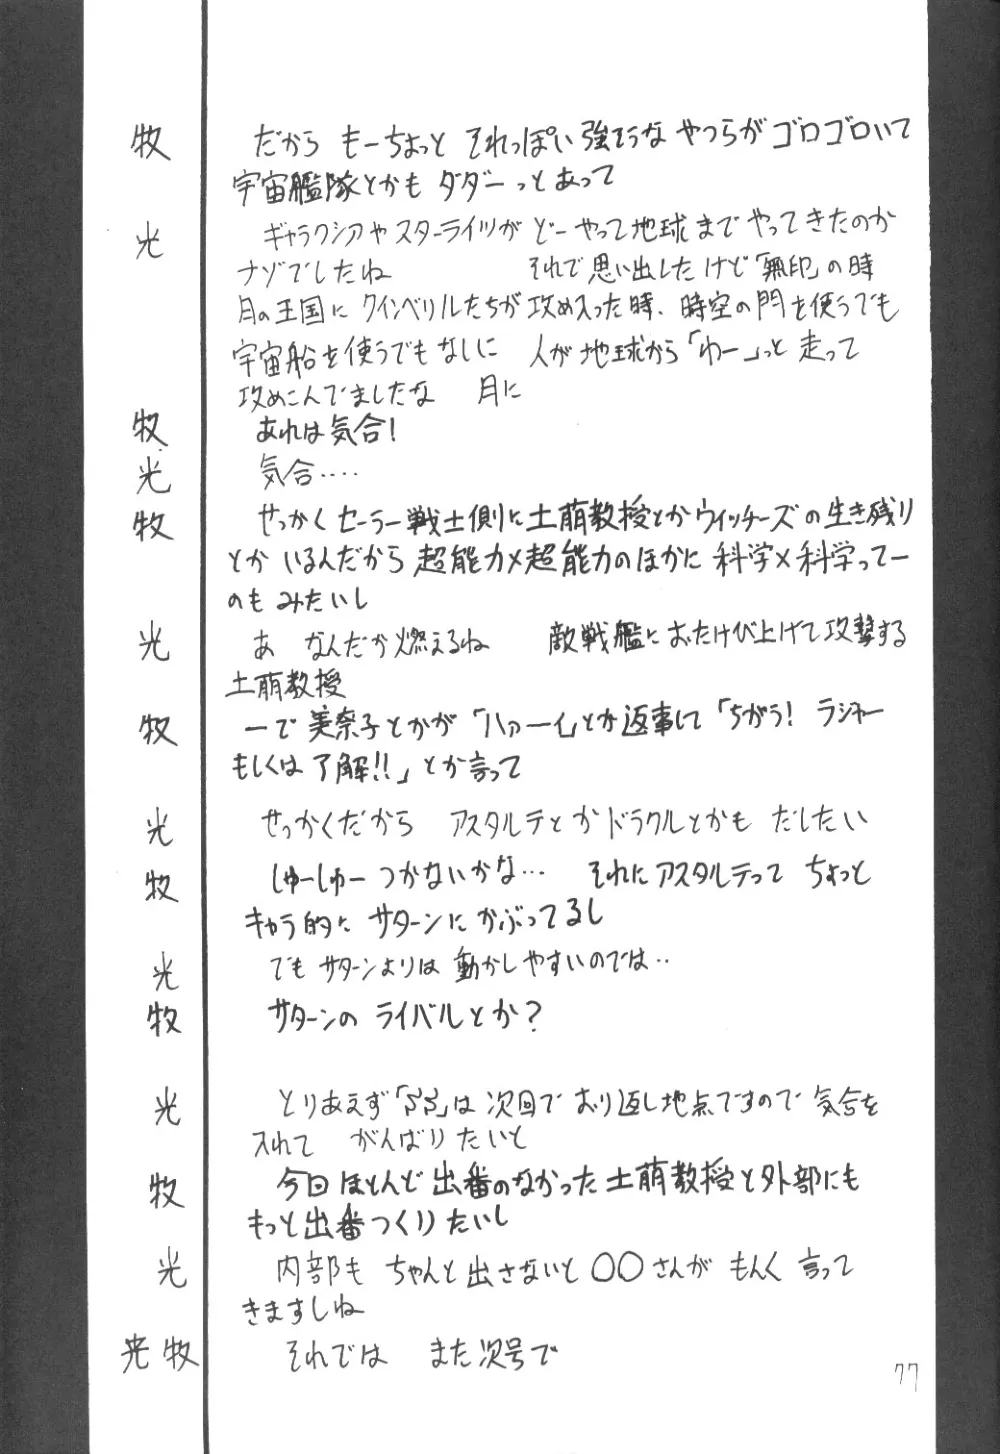 牧 だから もーちょっと それっぽい強そうな やつらがゴロゴロいて
宇宙艦隊とかも ダダーっとあって
光 ギャラクシアやスターライツが どーやって地球まで やってきたのか
ナゾでしたね それで思い出したけど「無印」の時
月の王国に クインベリルたちが攻め入った時、時空の門を使うでも
宇宙船を使うでもなしに 人が地球から「わー」っと 走って
攻めこんでましたな 月に
牧 あれは気合!
光 気合‥‥
牧 せっかくセーラー戦士側に土萌教授とかウィッチーズの生き残り
とか いるんだから 超能力×超能力のほかに 科学×科学ってー
のも みたいし
光 あ なんだか燃えるね 敵戦艦におたけび上げて攻撃する
土萌教授
牧 ーで 美奈子とかが「ハァーイ」とか返事して「ちがう! ラジャー
もしくは了解!!」とか言って
光 せっかくだから アスタルテとかドラクルとかも だしたい
牧 しゅーしゅー つかないかな… それにアスタルテって ちょっと
キャラ的に サターンにかぶってるし
光 でも サターンよりは 動かしやすいのでは‥
牧 サターンの ライバルとか?
光 とりあえず「ぶる」は次回で おり返し地点ですので 気合を
入れて がんばりたいと
牧 今回ほとんど出番のなかった土萌教授と外部にも
もっと出番つくりたいし
光 内部も ちゃんと出さないと○○さんが もんく 言って
きますしね
光牧 それでは また次号で
77